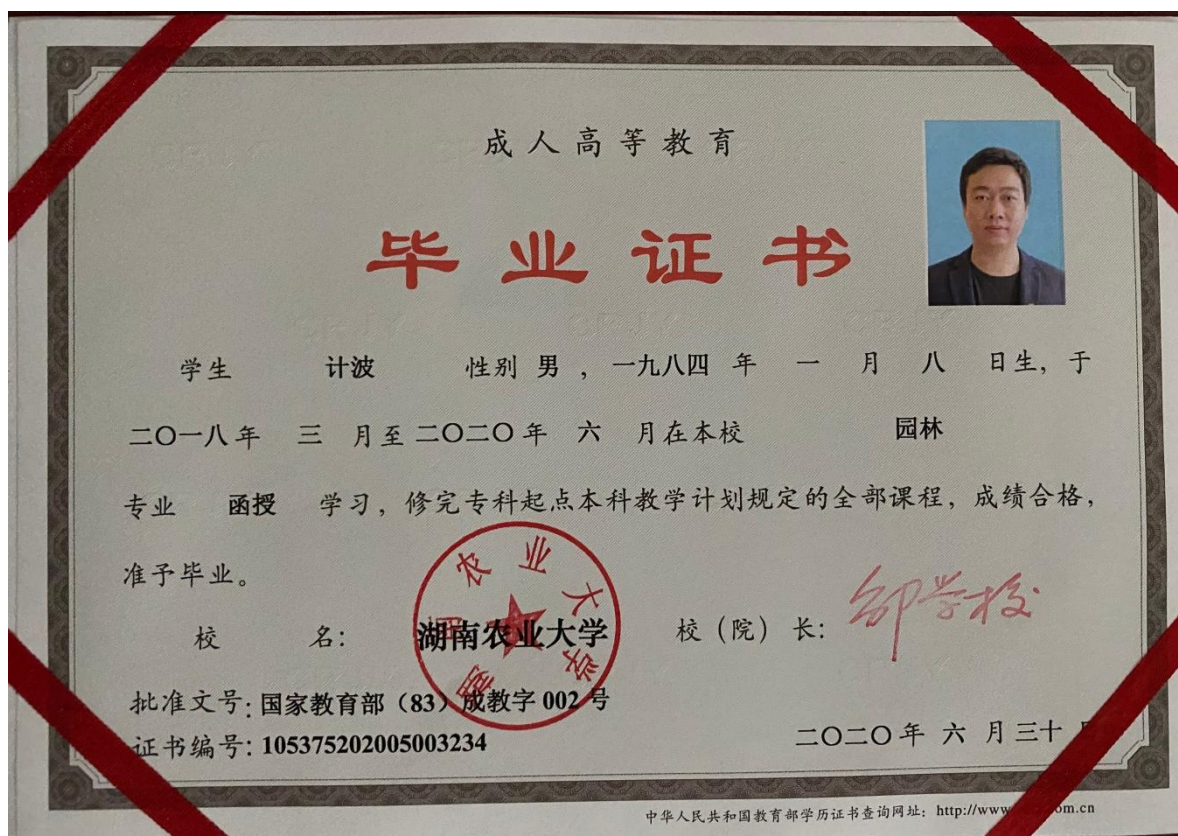 成人高等教育
毕业证书
学生 计波 性别 男 , 一九八四 年 一 月 八 日生, 于
二〇一八年 三 月至 二〇二〇年 六 月在本校 园林
专业 函授 学习, 修完专科起点本科教学计划规定的全部课程, 成绩合格,
准予毕业。
校 名: 湖南农业大学 校(院)长: 邹学校
湖南农业大学
批准文号: 国家教育部(83)成教字 002 号
证书编号: 105375202005003234
二〇二〇年 六 月 三十
中华人民共和国教育部学历证书查询网址: http://www om.cn